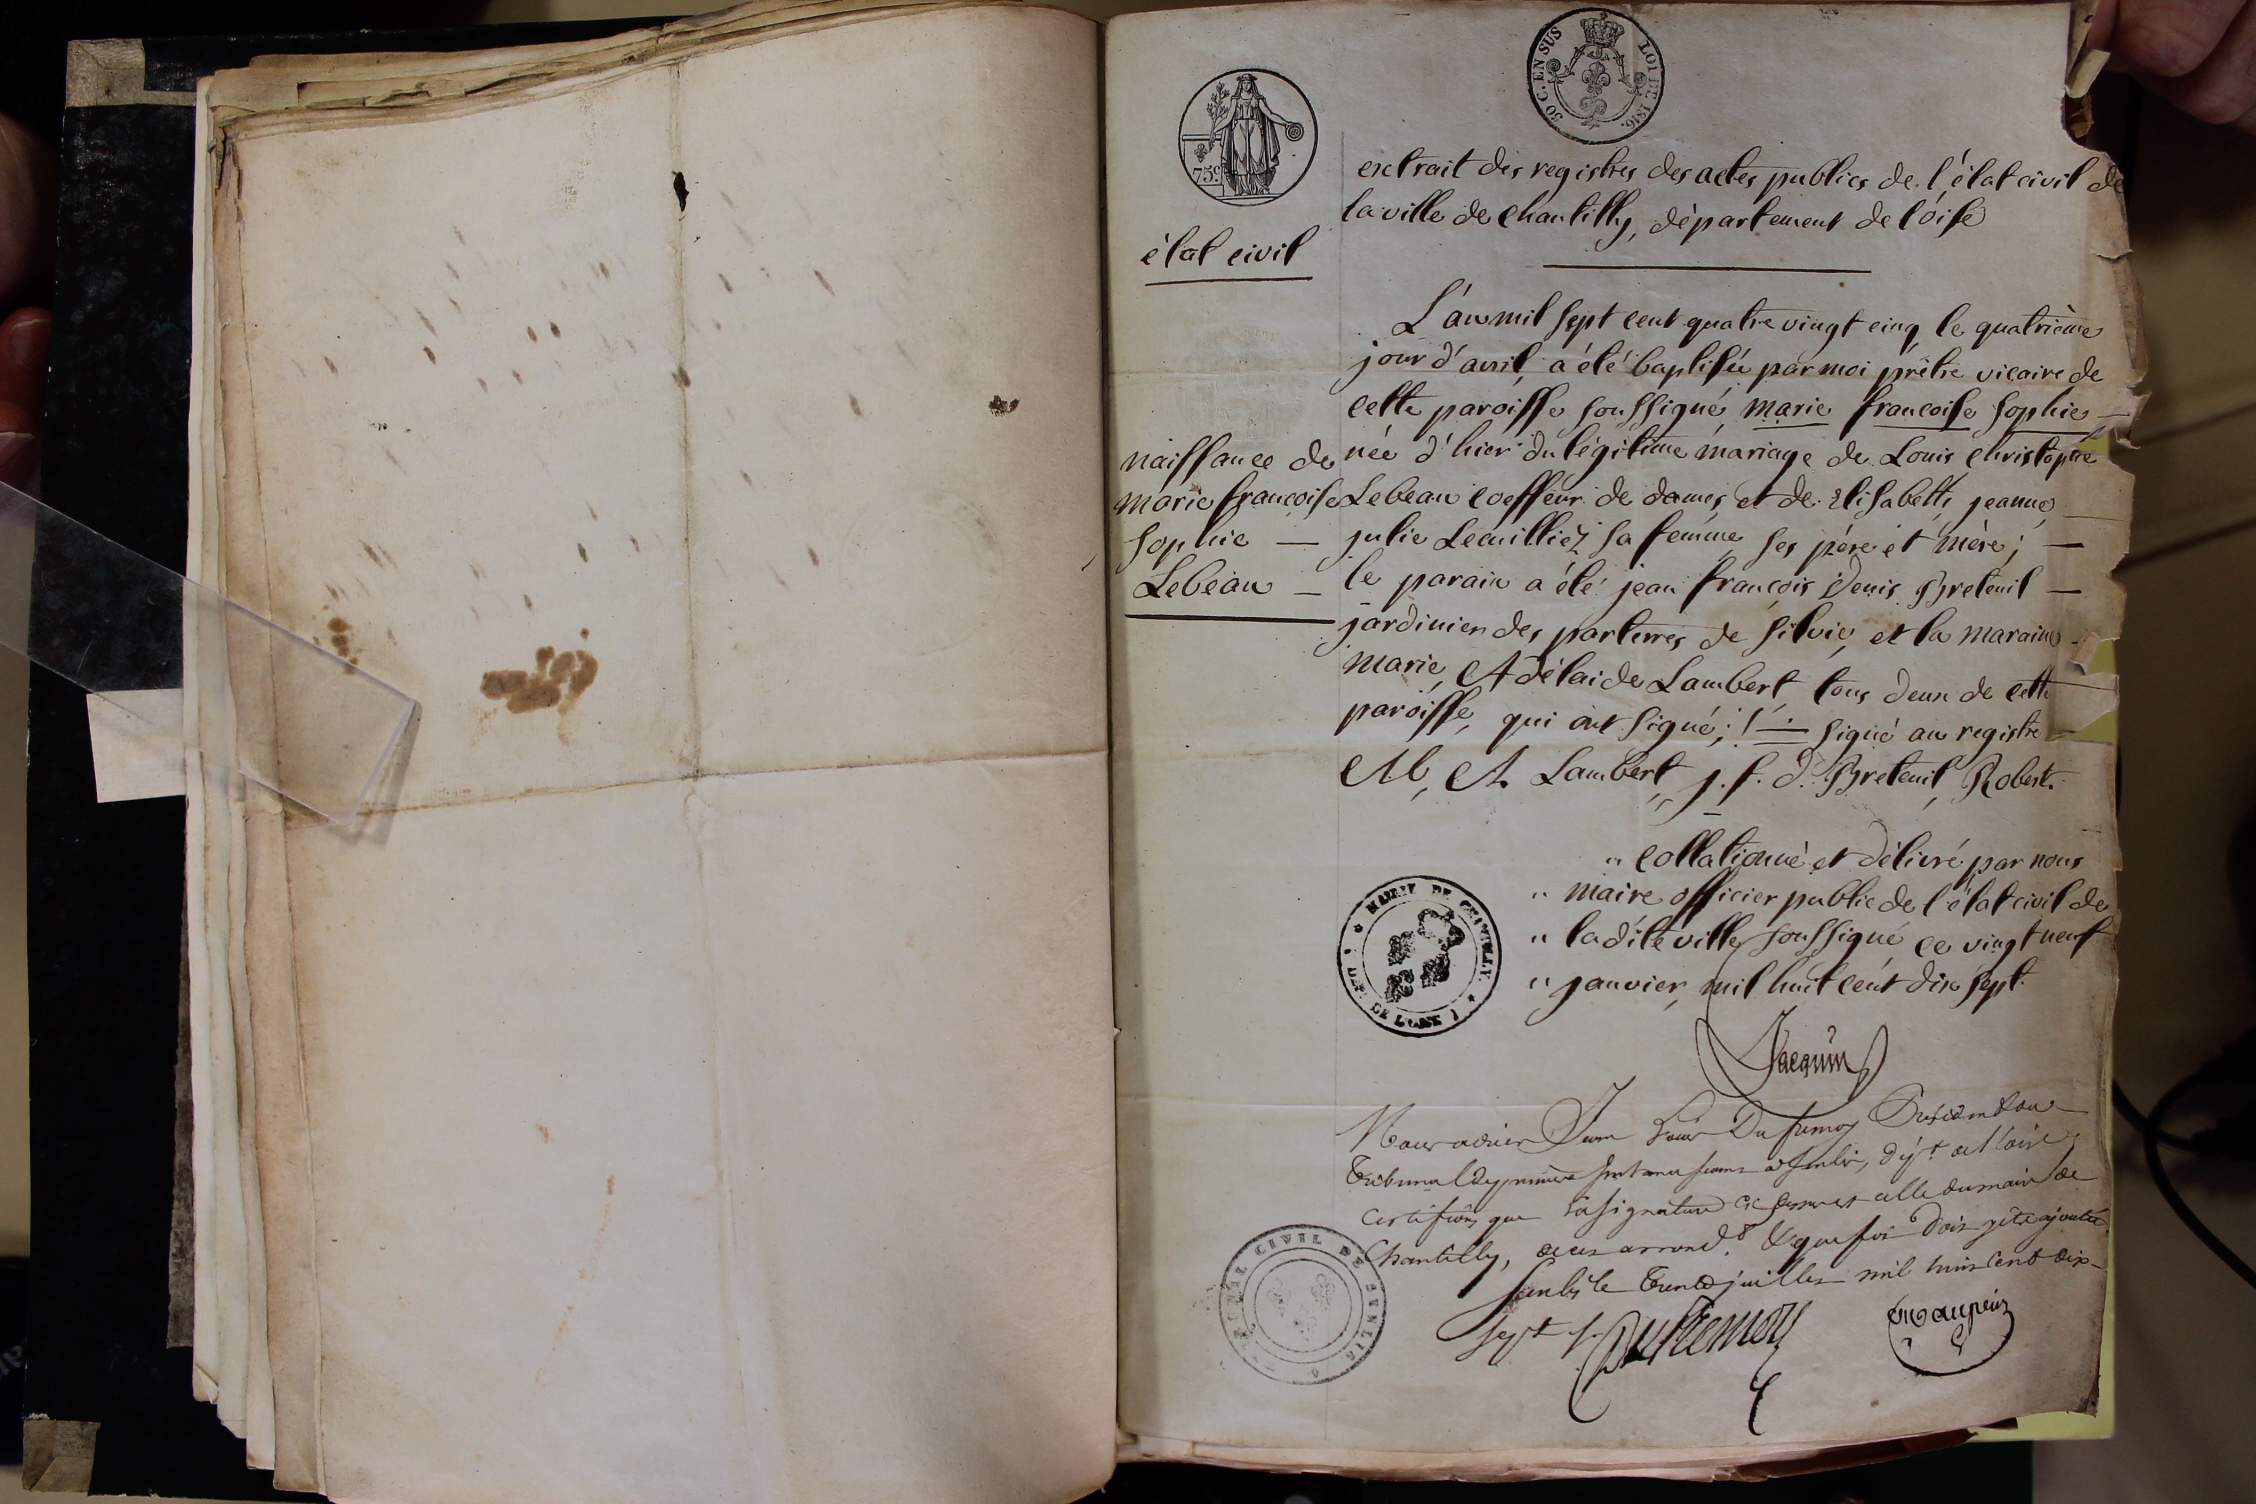 50 C. EN SUS LOI DE 1816.
75c
extrait des registres des actes publics de l'état civil de
la ville de Chantilly, département de l'oise
état civil
L'an mil sept cent quatre vingt cinq le quatrième
jour d'avril, a été baptisée par moi prêtre vicaire de
cette paroisse soussigné, marie francoise Sophie
née d'hier du légitime mariage de Louis Christophe
Lebeau coeffeur de dames, et de Elisabeth, jeanne,
julie Lecuilliez sa femme ses père et mère ;
le parain a été jean françois Denis Breteuil
jardinier des parterres de Silvie, et la maraine
marie, Adélaide Lambert, tous deux de cette
paroisse, qui ont signé ; signé au registre
M, A. Lambert, j. f. d. Breteuil, Robert.
naissance de
marie françoise
Sophie
Lebeau
" collationné et délivré par nous
" maire officier public de l'état civil de
" la dite ville soussigné, ce vingt neuf
" janvier, mil huit cent dix sept.
MAIRIE DE CHANTILLY.
DEPT DE L'OISE
Jacquin
Nous Jean Louis Dufresnoy Président du
Tribunal de première Instance séant à Senlis, dépt de l'oise,
Certifions que la signature ci dessus est celle du maire de
Chantilly, de cet arrond. & que foi doit y être ajoutée
Senlis le trente juillet mil huit cent dix
sept
TRIBUNAL CIVIL DE SENLIS